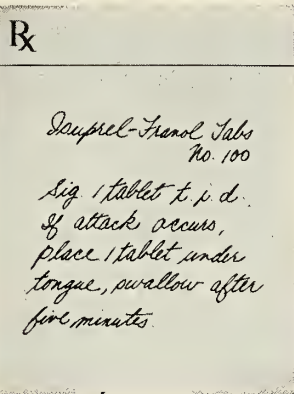 Rx
Isuprel-Franol Tabs
No. 100
Sig. 1 tablet t.i.d.
If attack occurs,
place 1 tablet under
tongue, swallow after
five minutes.